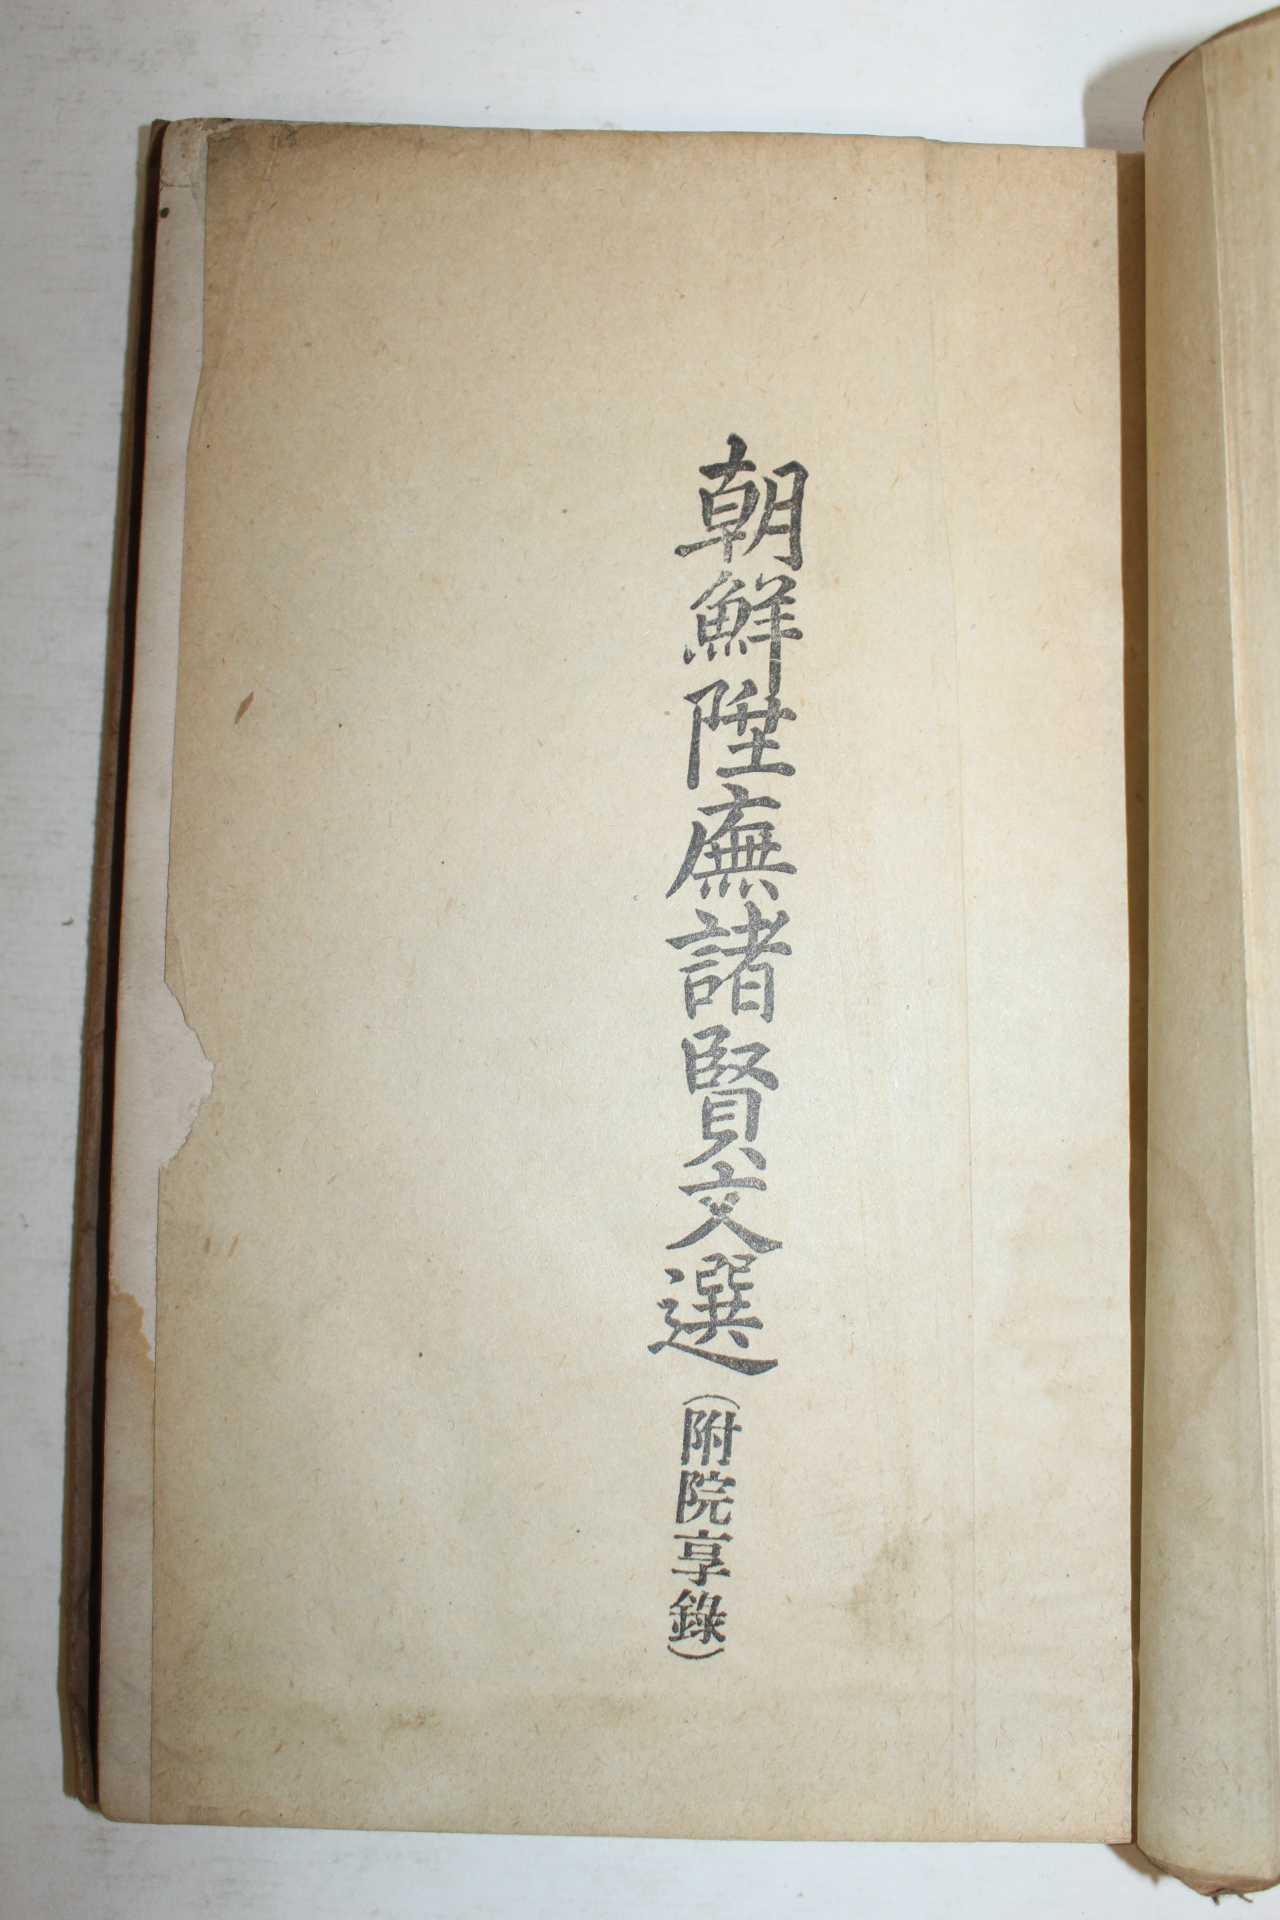 朝鮮陞廡諸賢文選(附院享錄)